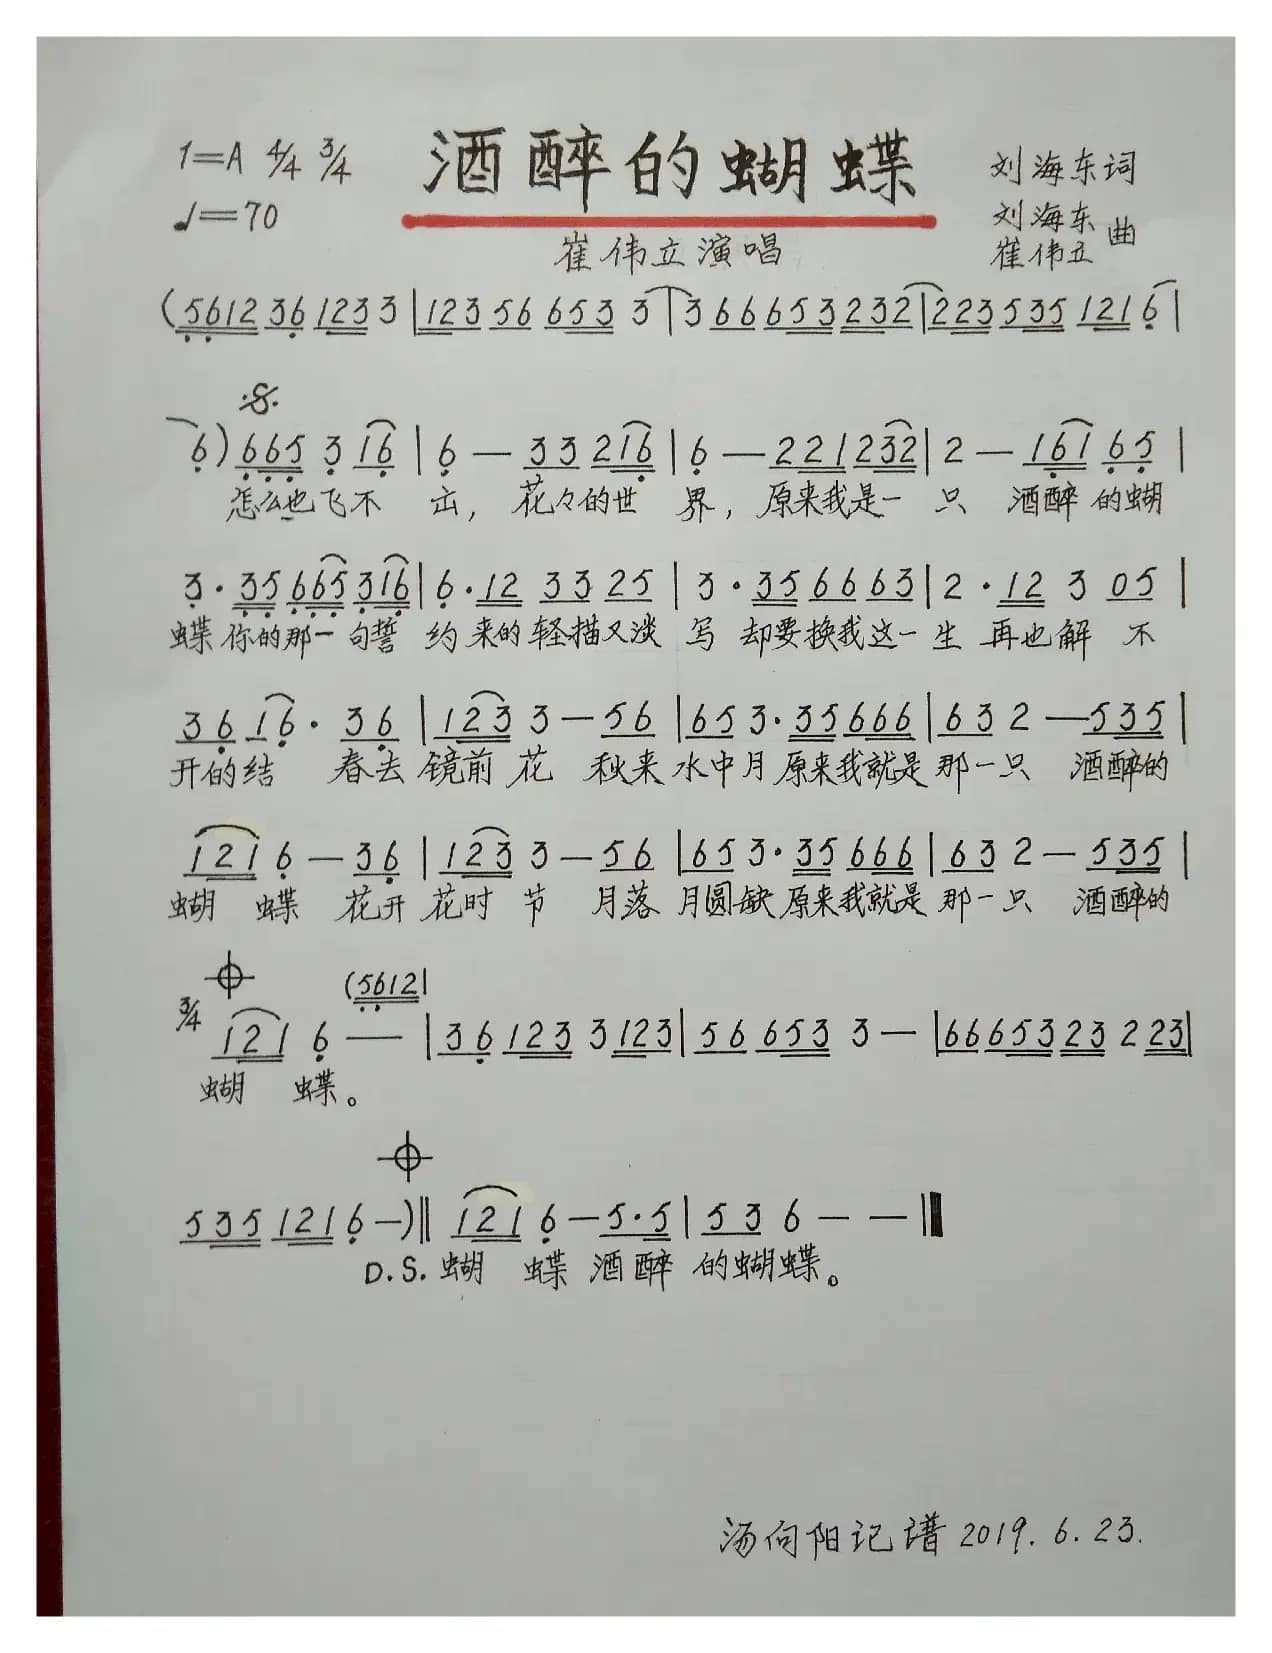 1=A 4/4 3/4 酒醉的蝴蝶 刘海东词
♩=70 刘海东 崔伟立 曲
崔伟立演唱
(5612 36 1233 3 | 123 56 653 3 | 3 666533 232 | 223535 121 6 |
6) 665 3 16 | 6 — 33 216 | 6 — 221232 | 2 — 161 65 |
怎么也飞不 出, 花々的世 界, 原来我是一 只 酒醉 的蝴
3 · 35 665 316 | 6 · 12 33 25 | 3 · 35 66 63 | 2 · 12 3 05 |
蝶 你的那一句誓 约 来的轻描又淡 写 却要换我这一生 再也解 不
36 16 · 36 | 123 3 — 56 | 653 · 35 666 | 632 — 535 |
开的结 春去 镜前 花 秋来 水中月 原来我就是 那一只 酒醉的
121 6 — 36 | 123 3 — 56 | 653 · 35 666 | 632 — 535 |
蝴 蝶 花开 花时 节 月落 月圆缺 原来我就是 那一只 酒醉的
(5612|
3/4 121 6 —— | 36 123 3 123 | 56 653 3 — | 6665323 2 23 |
蝴 蝶。
535 121 6 —)‖ 121 6 — 5·5 | 53 6 — — ‖
D.S. 蝴 蝶 酒醉 的蝴蝶。
汤向阳记谱 2019.6.23.